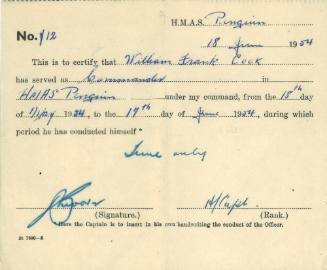 H.M.A.S. Penguin
No. 1/12
18 June 1954
This is to certify that William Frank Cook
has served as Commander in
HMAS Penguin under my command, from the 18th day
of May 1954, to the 17th day of June 1954, during which
period he has conducted himself*
Time only
(Signature.) (Rank.)
Here the Captain is to insert in his own handwriting the conduct of the Officer.